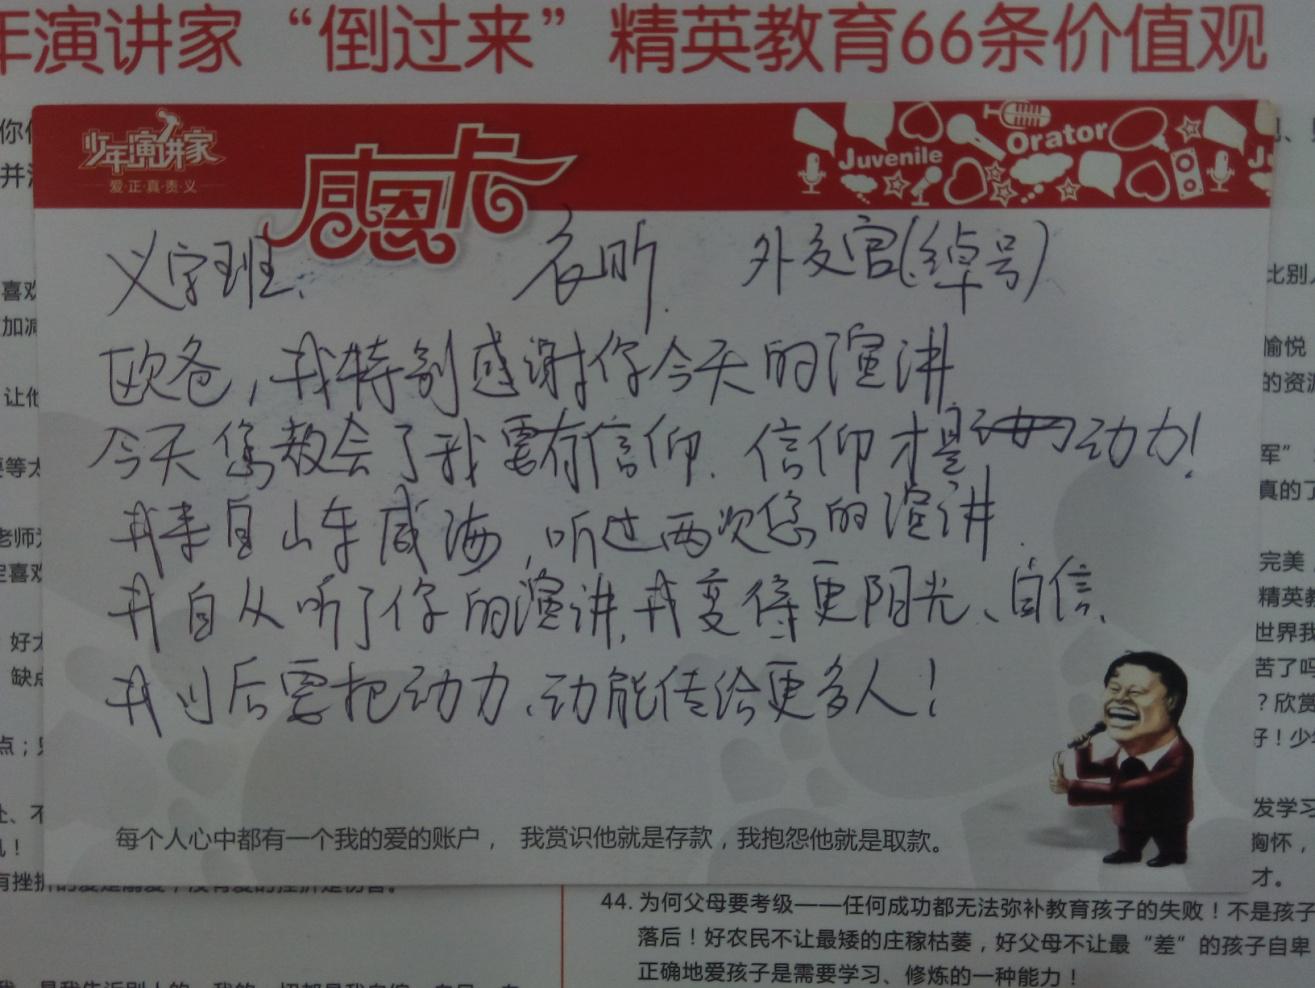 年演讲家“倒过来”精英教育66条价值观
少年演讲家
爱·正·真·责·义
感恩卡
Juvenile
Orator
义字班. 衣昕. 外交官(绰号)
欧爸,我特别感谢你今天的演讲
今天您教会了我要有信仰.信仰才是动力!
我来自山东威海,听过两次您的演讲.
我自从听了你的演讲,我变得更阳光、自信.
我以后要把动力、动能传给更多人!
每个人心中都有一个我的爱的账户, 我赏识他就是存款,我抱怨他就是取款。
你
并
喜欢
加减
让他
要等太
老师
定喜欢
好太
缺点
点;
处、不
比别
愉悦
的资源
军”
真的了
完美
精英教
世界我
苦了吗
?欣赏
好!少
发学习
胸怀,
才。
44. 为何父母要考级——任何成功都无法弥补教育孩子的失败!不是孩子
落后!好农民不让最矮的庄稼枯萎,好父母不让最“差”的孩子自卑
正确地爱孩子是需要学习、修炼的一种能力!